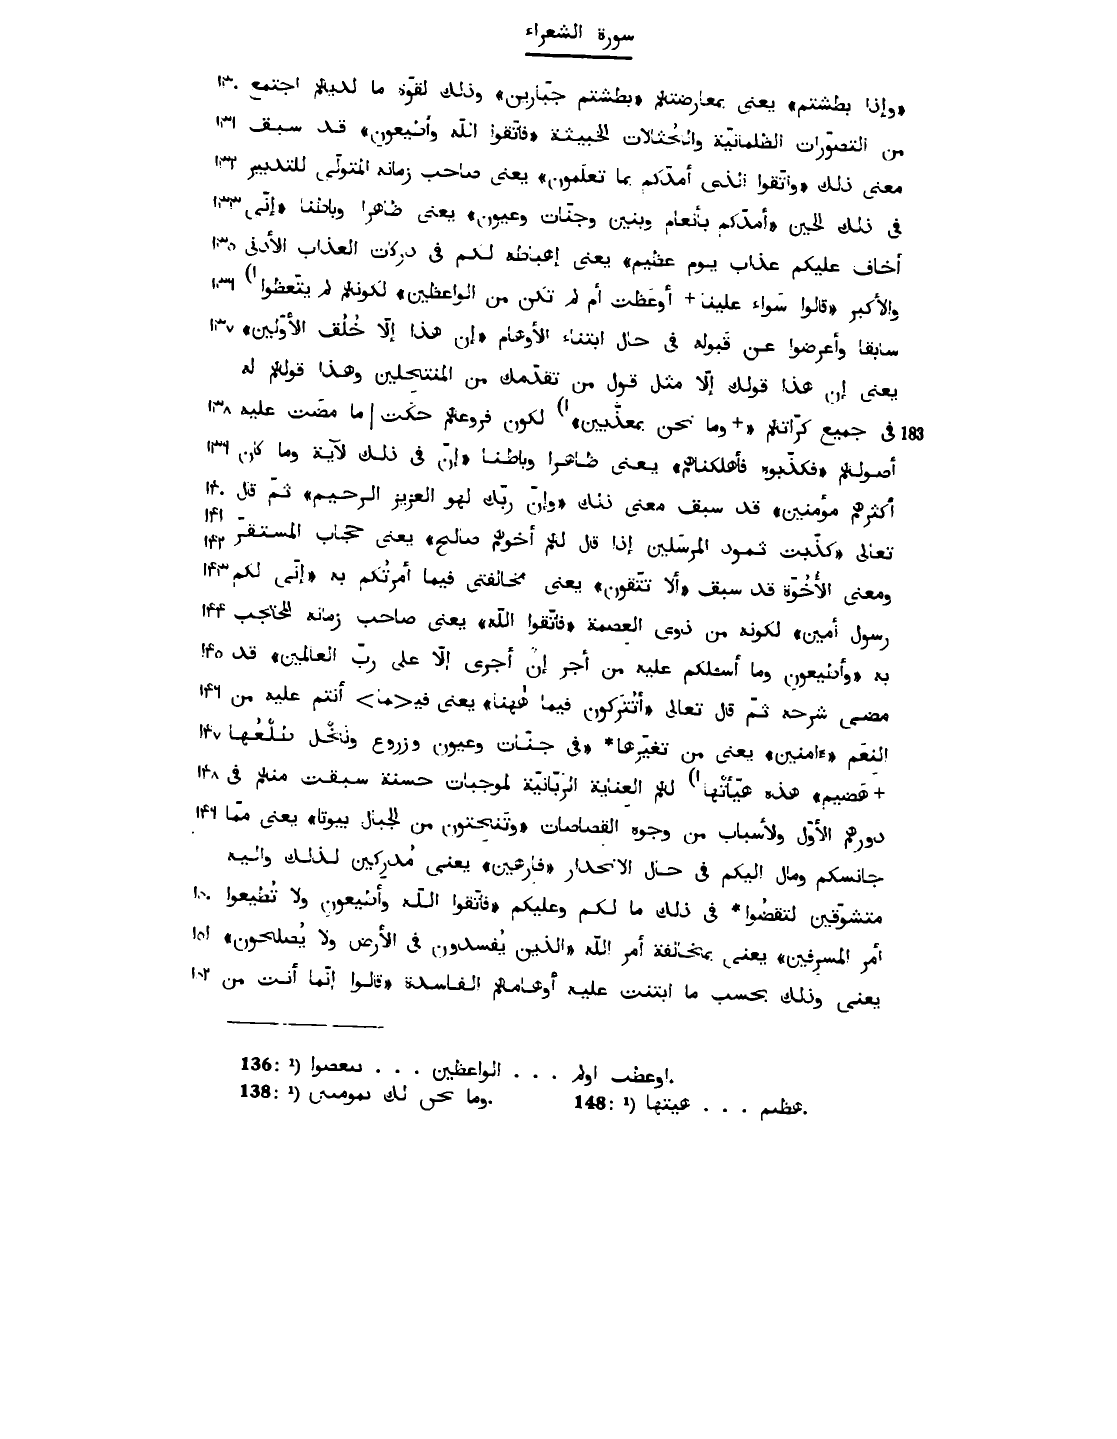 سورة الشعراء
«وإذا بطشتم» يعنى بمعارضتهم «بطشتم جبّارين» وذلك لقوّة ما لديهم اجتمع ١٣٠
من التصوّرات الظلمانيّة والخُثالات الخبيثة «فاتّقوا اللّه وأطيعون» قد سبق ١٣١
معنى ذلك «واتّقوا الذى أمدّكم بما تعلمون» يعنى صاحب زمانه المتولّى للتدبير ١٣٢
فى ذلك الحين «أمدّكم بأنعام وبنين وجنّات وعيون» يعنى ظاهرا وباطنا «إنّى ١٣٣
أخاف عليكم عذاب يوم عظيم» يعنى إهباطه لكم فى دركات العذاب الأدنى ١٣٥
والأكبر «قالوا سَواء علينا + أوعَظت أم لم تكن من الواعظين» لكونهم لم يتّعظوا¹) ١٣٦
سابقا وأعرضوا عن قبوله فى حال ابتناء الأوهام «إن هذا إلّا خُلُق الأوّلين» ١٣٧
يعنى إن هذا قولك إلّا مثل قول من تقدّمك من المنتحلين وهذا قولهم له
183 فى جميع كرّاتهم «+ وما نحن بمعذّبين»¹) لكون فروعهم حكَت | ما مضَت عليه ١٣٨
أصولهم «فكذّبوه فأهلكناهم» يعنى ظاهرا وباطنا «إنّ فى ذلك لآية وما كان ١٣٩
أكثرهم مؤمنين» قد سبق معنى ذلك «وإنّ ربّك لهو العزيز الرحيم» ثمّ قال ١٤٠
تعالى «كذّبت ثمود المرسَلين إذا قال لهم أخوهم صالح» يعنى حجاب المستقرّ ١٤١ ١٤٢
ومعنى الأُخُوّة قد سبق «ألا تتّقون» يعنى مخالفتى فيما أمرتُكم به «إنّى لكم ١٤٣
رسول أمين» لكونه من ذوى العصمة «فاتّقوا اللّه» يعنى صاحب زمانه المحتجب ١٤٤
به «وأطيعون وما أسئلكم عليه من أجر إنْ أجرى إلّا على ربّ العالمين» قد ١٤٥
مضى شرحه ثمّ قال تعالى «أتُتركون فيما هٰهنا» يعنى فيـ<ما> أنتم عليه من ١٤٦
النعَم «ءامنين» يعنى من تغيّرها* «فى جنّات وعيون وزروع ونَخْل طَلْعُها ١٤٧
+ هَضيم» هذه هيّأتْها¹) لهم العناية الربّانيّة لموجبات حسنة سبقت منهم فى ١٤٨
دورهم الأوّل ولأسباب من وجوه القصاصات «وتَنحتون من الجبال بيوتا» يعنى ممّا ١٤٩
جانسكم ومال اليكم فى حال الانحدار «فارهين» يعنى مُدركين لذلك واليه
متشوّقين لتقضُوا* فى ذلك ما لكم وعليكم «فاتّقوا اللّه وأطيعون ولا تُطيعوا ١٥٠
أمر المسرفين» يعنى بمخالفة أمر اللّه «الذين يُفسدون فى الأرض ولا يُصلحون» ١٥١
يعنى وذلك بحسب ما ابتنت عليه أوهامهم الفاسدة «قالوا إنّما أنت من ١٥٢
136: ¹) اوعطب اولم . . . الواعظين . . . ٮٮعصوا.
138: ¹) وما نحن لك ٮمومٮٮں. 148: ¹) عظيم . . . هيتها.